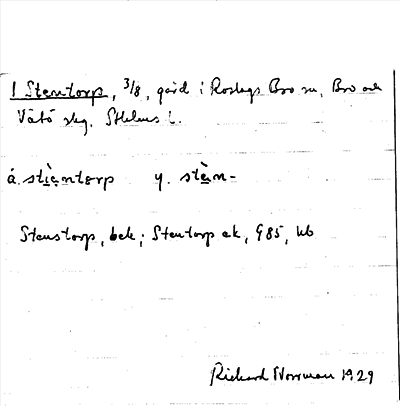 1 Stentorp, 3/8, gård i Roslags Bro sn, Bro och
Vätö skg. Sthlms l.
á. stìentorp y. stèn-
Stenstorp, bek; Stentorp ek, 985, kb
Richard Norrman 1929